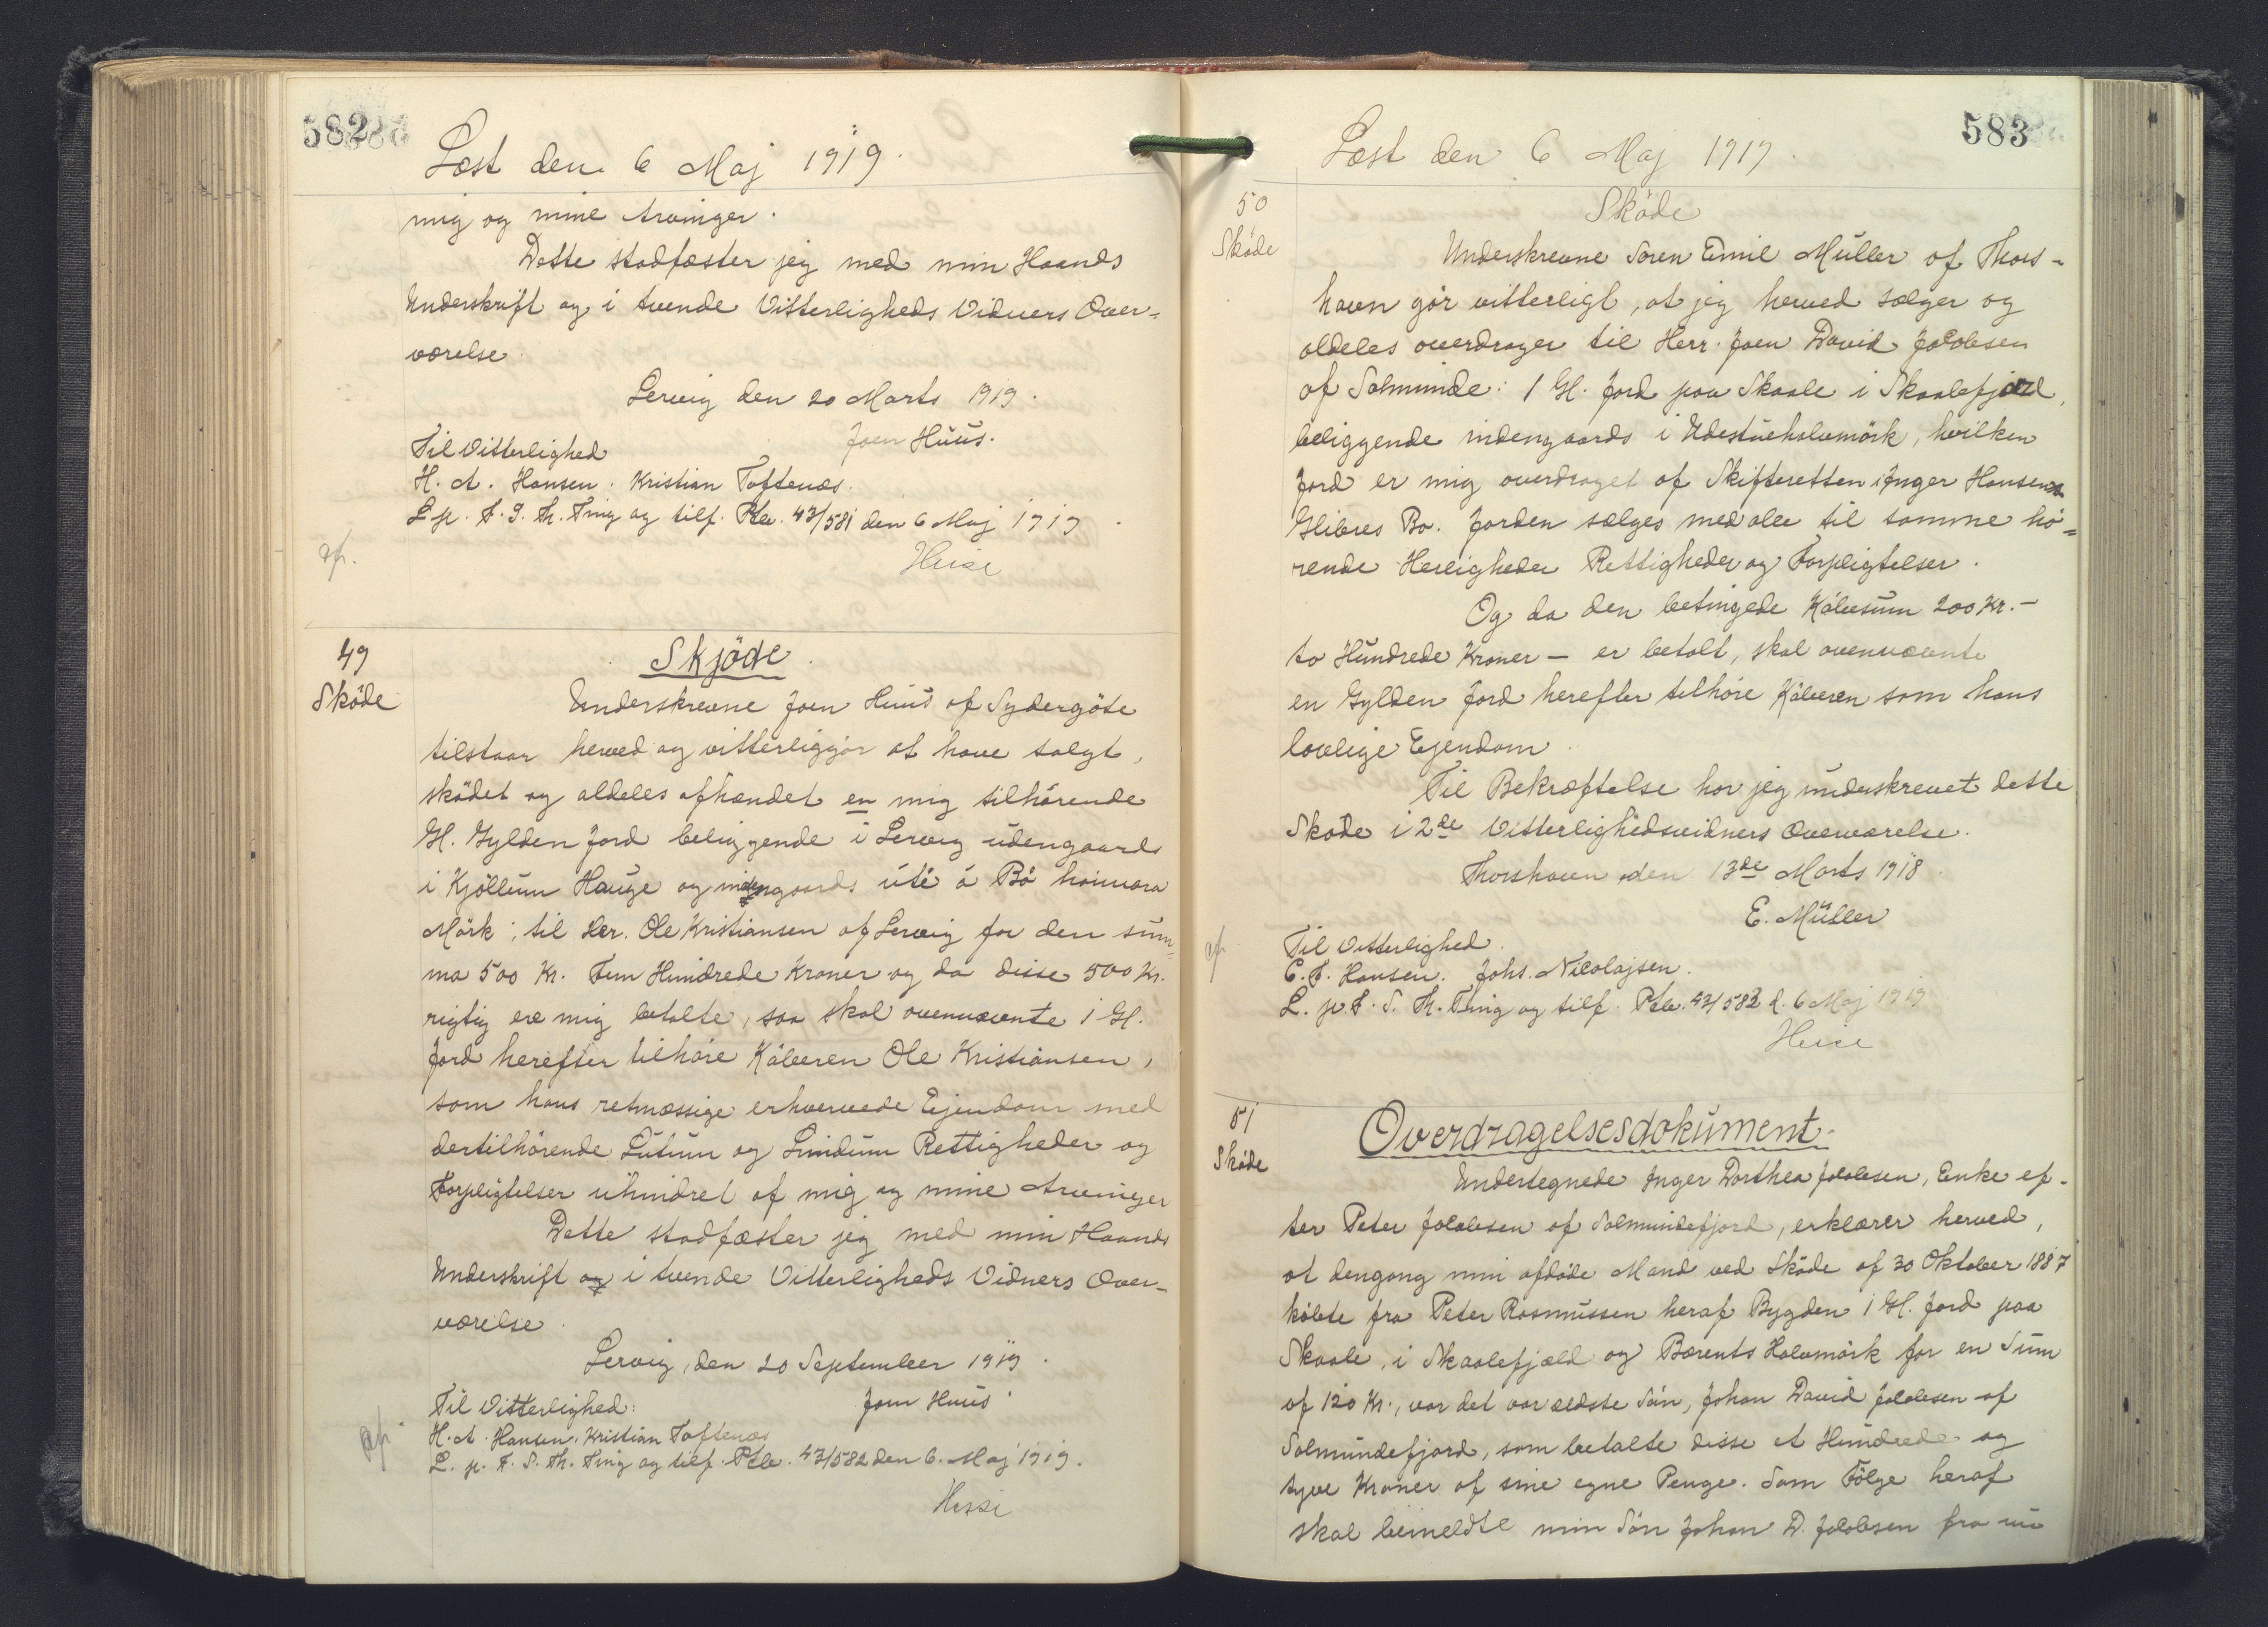 582
Læst den 6 Maj 1919.
mig og mine Arvinger.
Dette stadfæster jeg med min Haands
Underskrift og i tvende Vitterligheds Vidners Over=
værelse.
Lervig den 20 Marts 1919.
Til Vitterlighed
Joen Huus.
H. A. Hansen. Kristian Toftenæs.
L. p. F. S. Th. Ting og tilf. Ptb. 43/581 den 6 Maj 1919
afs.
49
Sköde
Skjöde
Underskrevne Joen Huus af Sydergöte
tilstaar herved og vitterliggjör at have solgt,
sködet og aldeles afhændet en mig tilhörende
Gl. Gylden Jord beliggende i Lervig udengaards
i Kjöllum Hauge og indengaards úté á Bö
Mörk; til Hr. Ole Kristiansen af Lervig for den sum=
ma 500 Kr. Fem Hundrede Kroner og da disse 500 Kr.
rigtig ere mig betalte, saa skal ovennævnte 1 Gl.
Jord herefter tilhöre Köberen Ole Kristiansen,
som hans retmæssige erhvervede Ejendom med
dertilhörende Lutum og Lundum Rettigheder og
Forpligtelser uhindret af mig og mine Arvinger
Dette stadfæster jeg med min Haands
Underskrift og i tvende Vitterligheds Vidners Over-
værelse.
Lervig, den 20 September 1919.
Til Vitterlighed:
Joen Huus
H. A. Hansen. Kristian Toftenæs
L. p. F. S. Th. Ting og tilf. Ptb. 43/582 den 6. Maj 1919.
583
Læst den 6 Maj 1919.
50
Sköde
Sköde
Underskrevne Sören Emil Müller af Thors-
havn gör vitterligt, at jeg herved sælger og
aldeles overdrager til Herr. Joen David Jacobsen
af Solmunde: 1 Gl. Jord paa Skaale i Skaalefjord,
beliggende indengaards i Udestuehalvmörk, hvilken
Jord er mig overdraget af Skifteretten i Inger Hansens
Glibres Bo. Jorden sælges med alle til samme hö=
rende Herligheder Rettigheder og Forpligtelser.
Og da den betingede Köbesum 200 Kr.-
to Hundrede Kroner - er betalt, skal ovennævnte
en Gylden Jord herefter tilhöre Köberen som hans
lovlige Ejendom.
Til Bekræftelse har jeg underskrevet dette
Sköde i 2de Vitterlighedsvidners Overværelse.
Thorshavn den 13de Marts 1918.
E. Müller
afs.
Til Vitterlighed.
C. F. Hansen. Johs. Nicolajsen.
L. p. F. S. Th. Ting og tilf. Ptb. 43/582 d. 6 Maj 1919
51
Sköde
Overdragelsesdokument.
Undertegnede Inger Dorthea Jacobsen, Enke ef-
ter Peter Jacobsen af Solmundefjord, erklærer herved,
at dengang min afdöde Mand ved Sköde af 30 Oktober 1887
köbte fra Peter Rasmussen heraf Bygden 1 Gl. Jord paa
Skaale, i Skaalefjæld og Bærents Halvmörk for en Sum
af 120 Kr., var det vor ældste Sön, Johan David Jacobsen af
Solmundefjord, som betalte disse et Hundrede og
tyve Kroner af sine egne Penge. Som Fölge heraf
skal bemeldte min Sön Johan D. Jacobsen fra nu